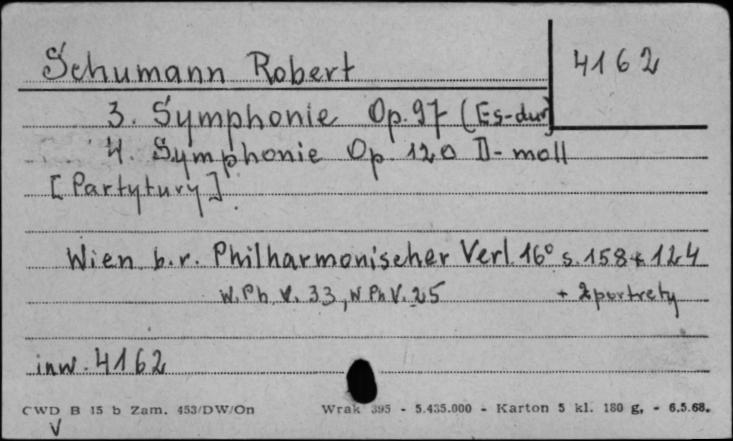 Schumann Robert
4162
3. Symphonie Op. 97 (Es-dur)
4. Symphonie Op. 120 D-moll
[Partytury]
Wien b.r. Philharmonischer Verl. 16° s. 158 + 124
W. Ph. V. 33, W Ph V. 25 + 2 portrety
inw. 4162
CWD B 15 b Zam. 453/DW/On Wrak 395 - 5.435.000 - Karton 5 kl. 180 g. - 6.5.68.
V